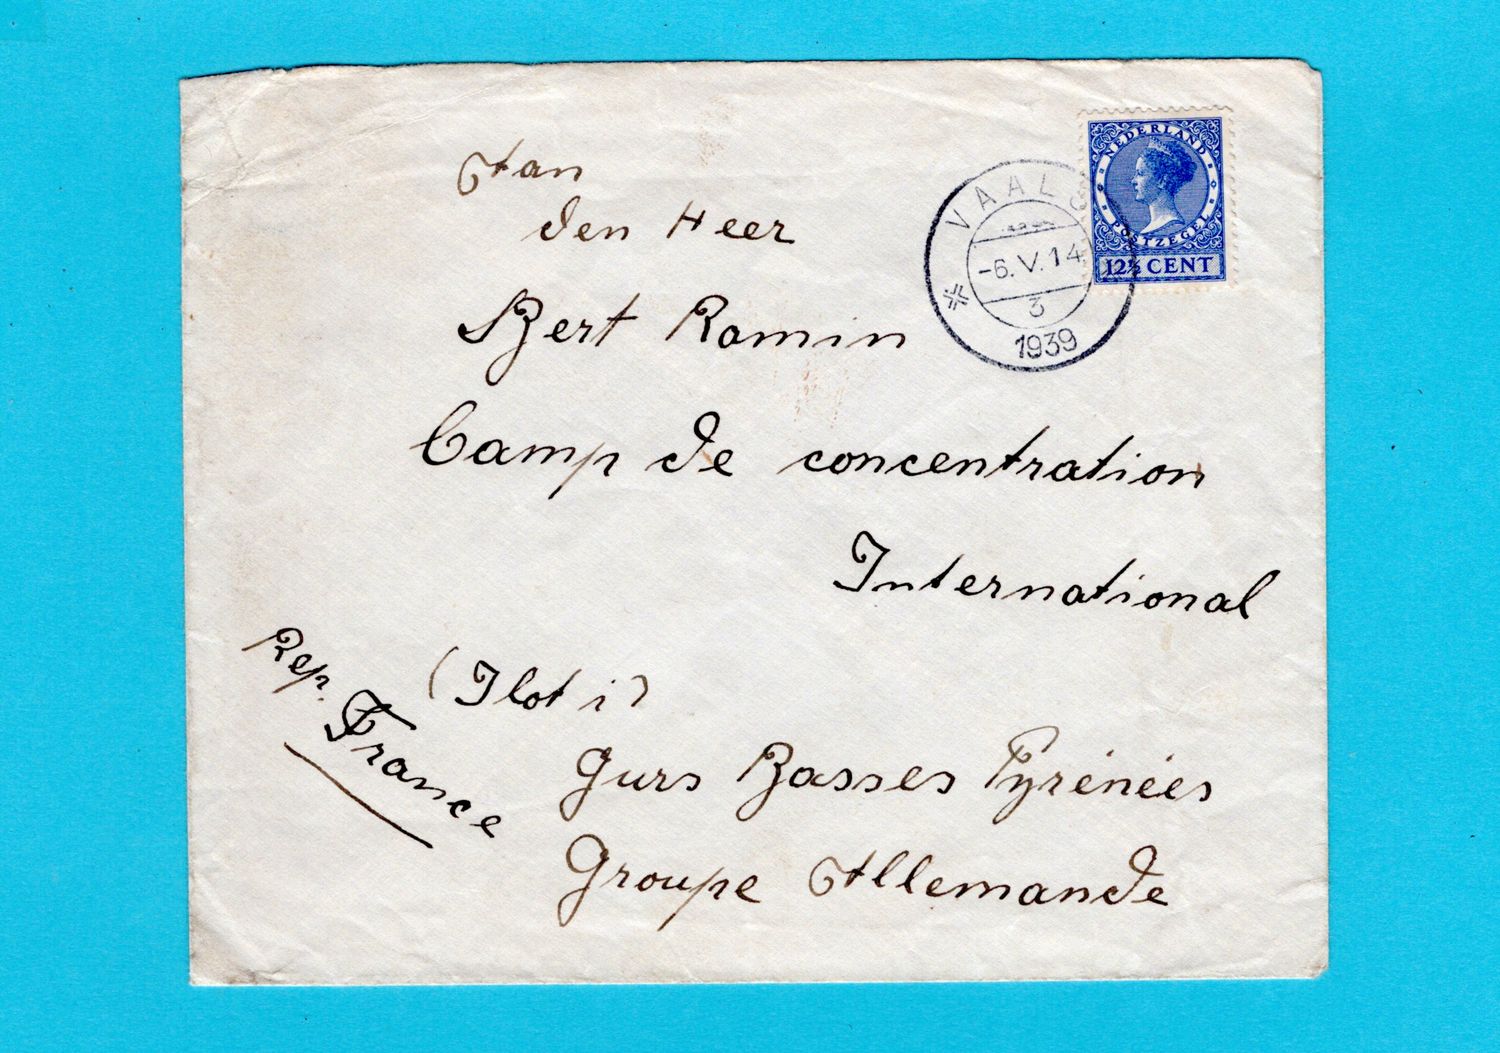 Aan
den Heer
Bert Ramin
Camp de concentration
International
(Ilot i)
Gurs Basses Pyrénées
Groupe Allemande
Rep. France
VAALS
-6.V.14
3
1939
NEDERLAND
POSTZEGEL
12½ CENT